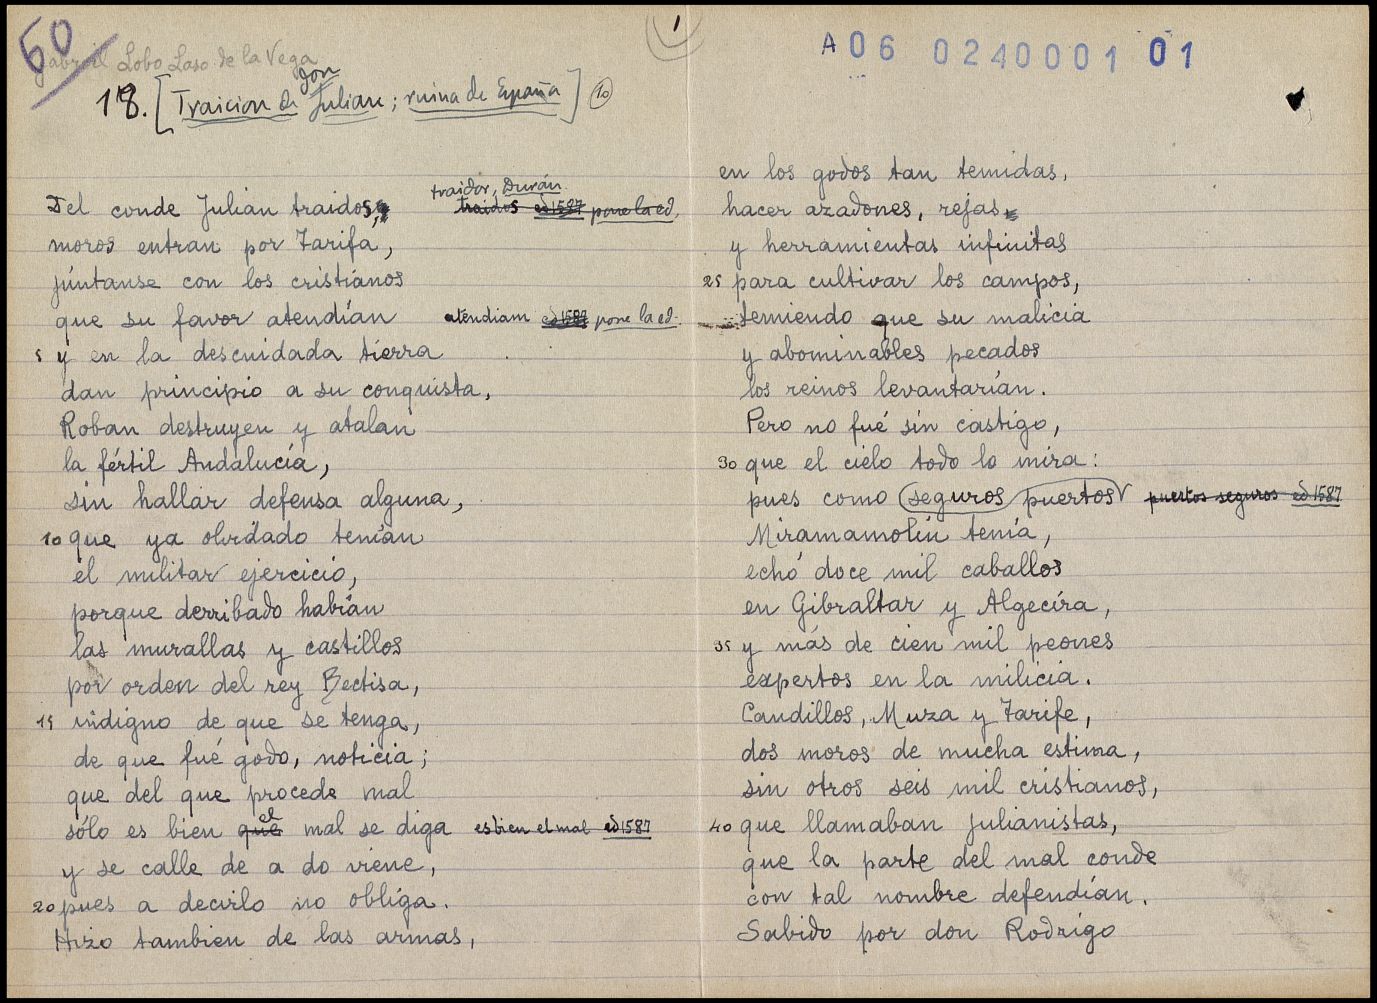 60
Gabriel Lobo Laso de la Vega
1
A06 0240001 01
18. [Traicion de don Julian; ruina de España] 10
Del conde Julian traidos,
traidor, Durán.
traidos ed 1587 pone la ed.
moros entran por Tarifa,
júntanse con los cristianos
que su favor atendían
atendiam ed 1587 pone la ed.
5 y en la descuidada tierra
dan principio a su conquista,
Roban destruyen y atalan
la fértil Andalucía,
sin hallar defensa alguna,
10 que ya olvidado tenían
el militar ejercicio,
porque derribado habían
las murallas y castillos
por orden del rey Bectisa,
15 indigno de que se tenga,
de que fué godo, noticia;
que del que procede mal
sólo es bien que el mal se diga es bien el mal ed 1587
y se calle de a do viene,
20 pues a decirlo no obliga.
Hizo tambien de las armas,
en los godos tan temidas,
hacer azadones, rejas
y herramientas infinitas
25 para cultivar los campos,
temiendo que su malicia
y abominables pecados
los reinos levantarían.
Pero no fué sin castigo,
30 que el cielo todo lo mira:
pues como seguros puertos puertos seguros ed 1587
Miramamolín tenía,
echó doce mil caballos
en Gibraltar y Algecira,
35 y más de cien mil peones
expertos en la milicia.
Caudillos, Muza y Tarife,
dos moros de mucha estima,
sin otros seis mil cristianos,
40 que llamaban julianistas,
que la parte del mal conde
con tal nombre defendían.
Sabido por don Rodrigo